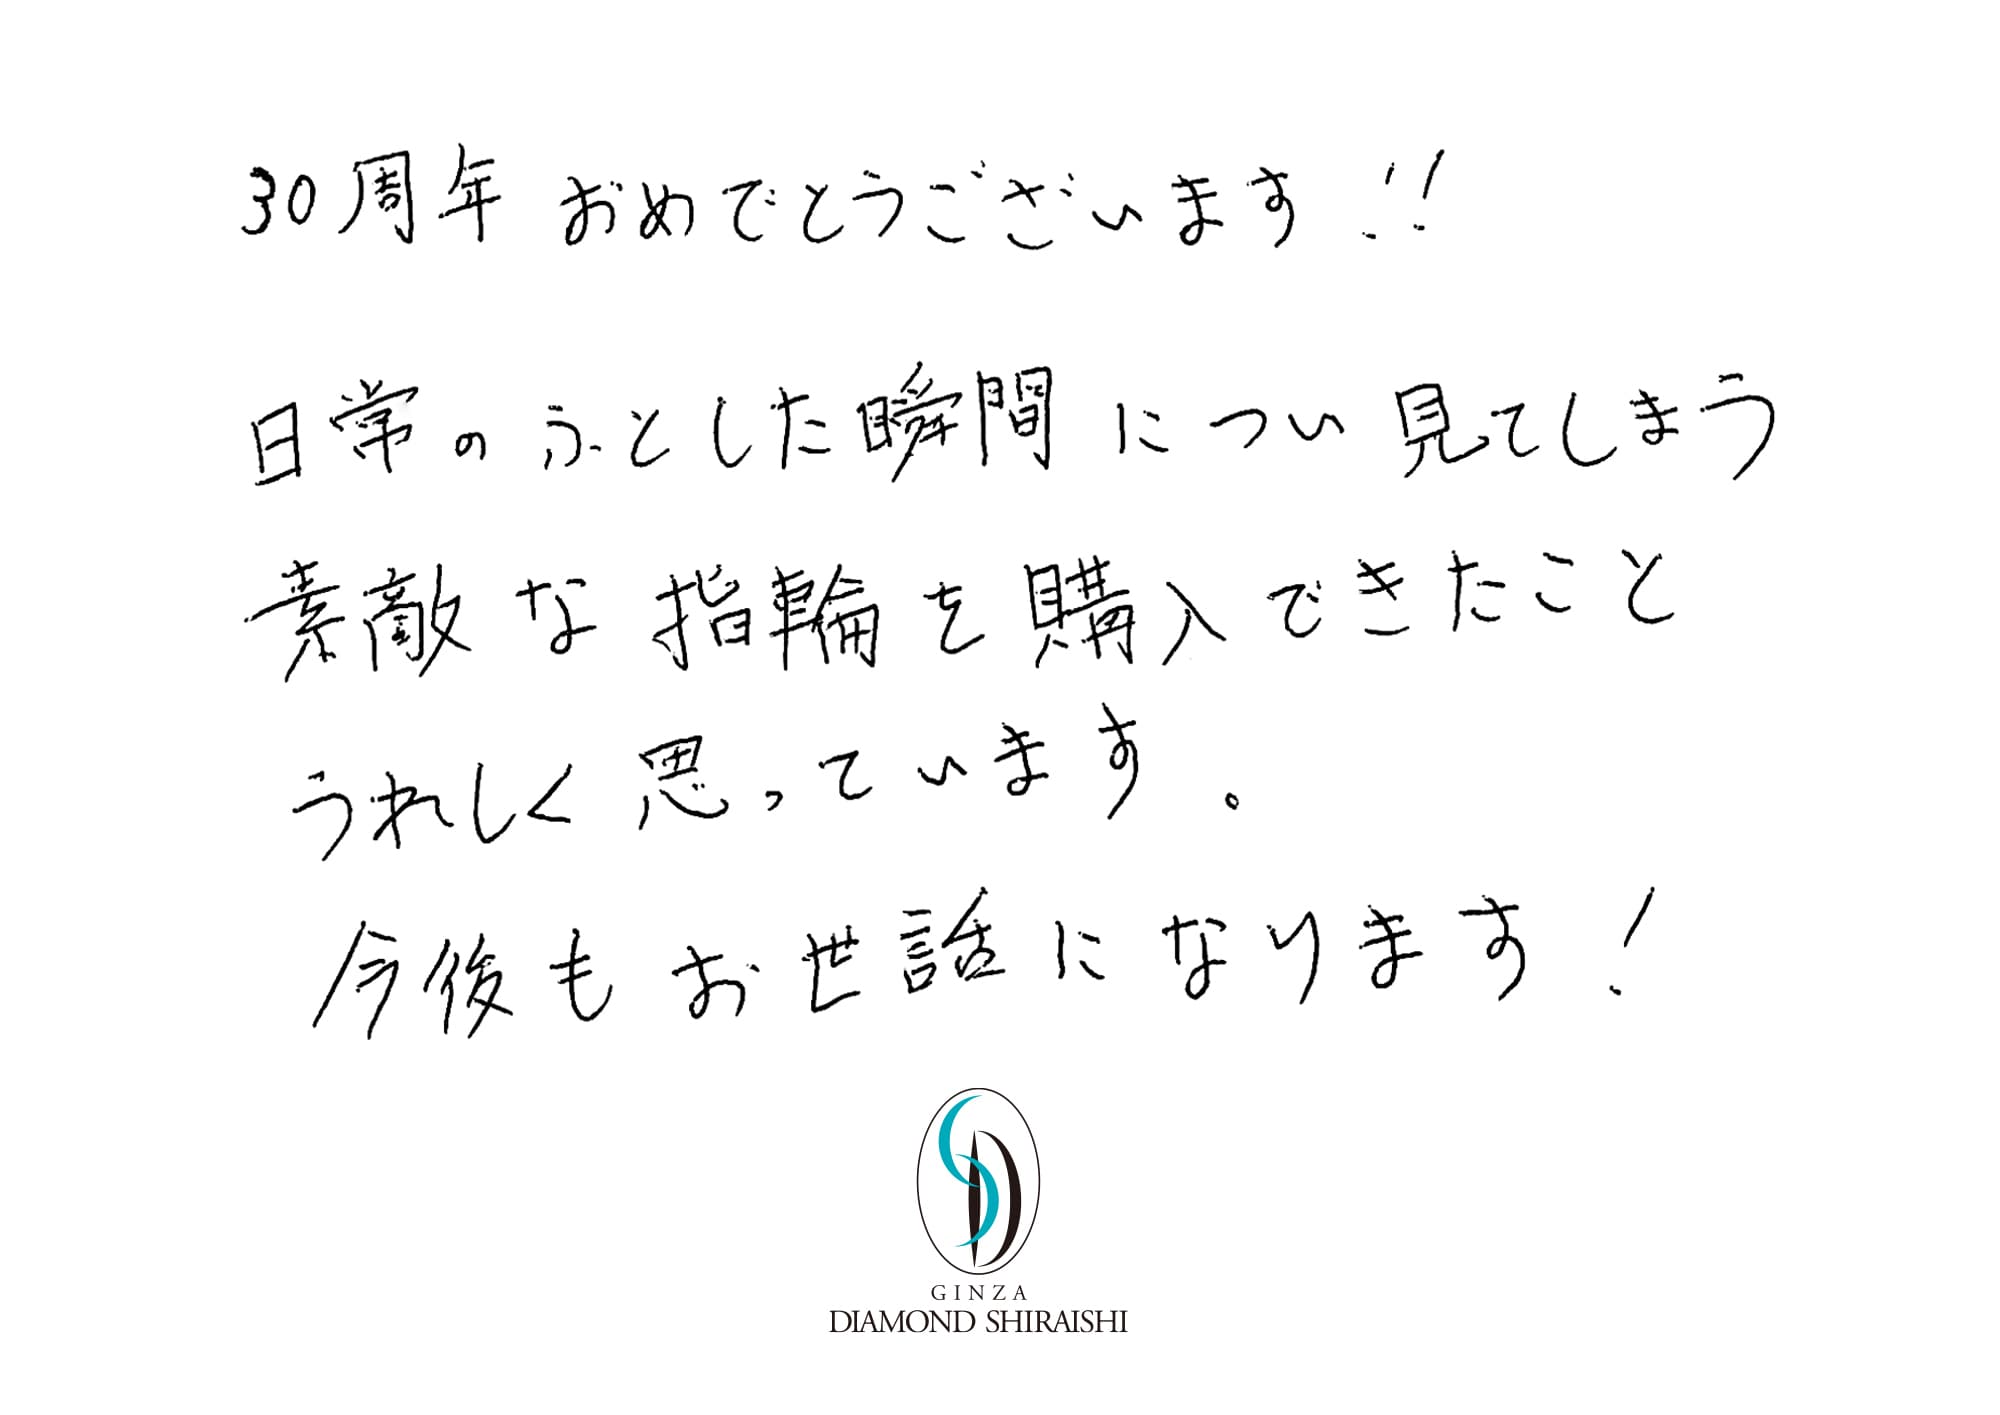 30周年 おめでとうございます!!
日常のふとした瞬間についつい見てしまう
素敵な指輪を購入できたこと
うれしく思っています。
今後もお世話になります!
GINZA
DIAMOND SHIRAISHI